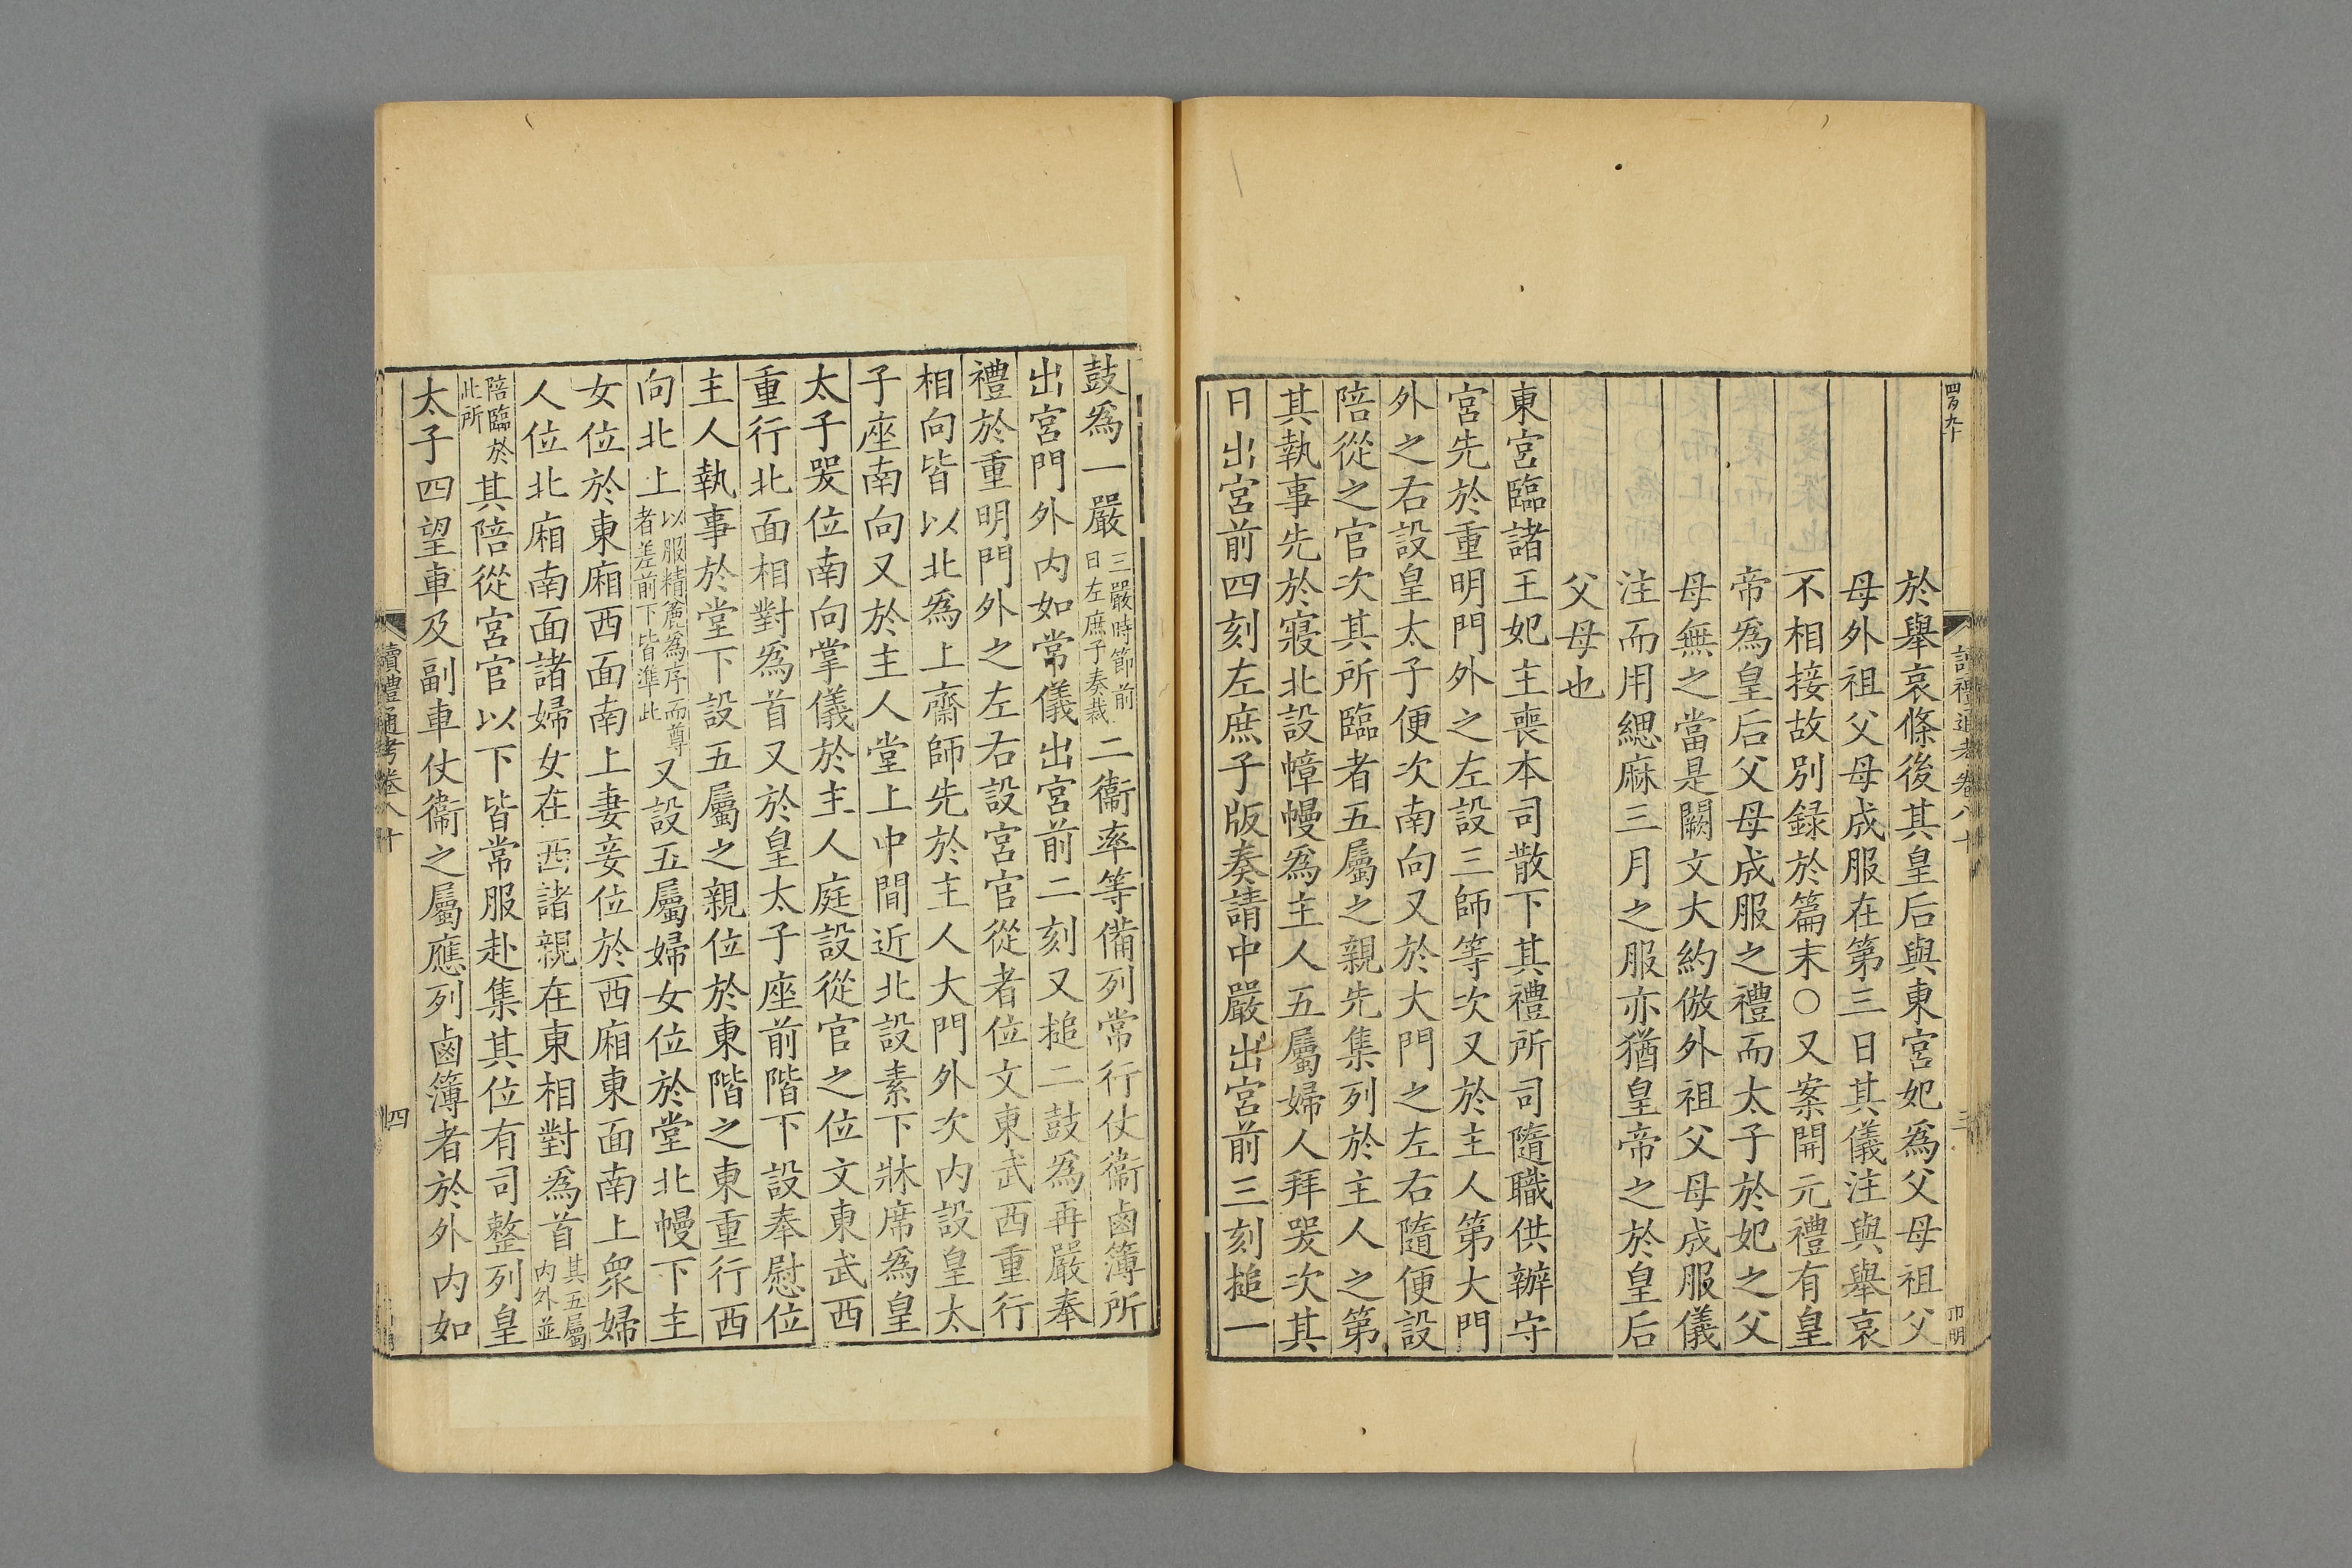 四百九十
讀禮通考卷八十
三
於舉哀條後其皇后與東宮妃爲父母祖父
母外祖父母成服在第三日其儀注與舉哀
不相接故別録於篇末○又案開元禮有皇
帝爲皇后父母成服之禮而太子於妃之父
母無之當是闕文大約倣外祖父母成服儀
注而用緦麻三月之服亦猶皇帝之於皇后
父母也
東宮臨諸王妃主喪本司散下其禮所司隨職供辦守
宮先於重明門外之左設三師等次又於主人第大門
外之右設皇太子便次南向又於大門之左右隨便設
陪從之官次其所臨者五屬之親先集列於主人之第
其執事先於寢北設幛幔爲主人五屬婦人拜哭次其
日出宮前四刻左庶子版奏請中嚴出宮前三刻搥一
鼓爲一嚴三嚴時節前日左庶子奏裁二衞率等備列常行仗衞鹵簿所
出宮門外内如常儀出宮前二刻又搥二鼓爲再嚴奉
禮於重明門外之左右設宮官從者位文東武西重行
相向皆以北爲上齋師先於主人大門外次内設皇太
子座南向又於主人堂上中間近北設素下牀席爲皇
太子哭位南向掌儀於主人庭設從官之位文東武西
重行北面相對爲首又於皇太子座前階下設奉慰位
主人執事於堂下設五屬之親位於東階之東重行西
向北上以服精麤爲序而尊者差前下皆準此又設五屬婦女位於堂北幔下主
女位於東廂西面南上妻妾位於西廂東面南上衆婦
人位北廂南面諸婦女在西諸親在東相對爲首其五屬内外並
陪臨於此所其陪從宮官以下皆常服赴集其位有司整列皇
太子四望車及副車仗衞之屬應列鹵簿者於外内如
讀禮通考卷八十
四